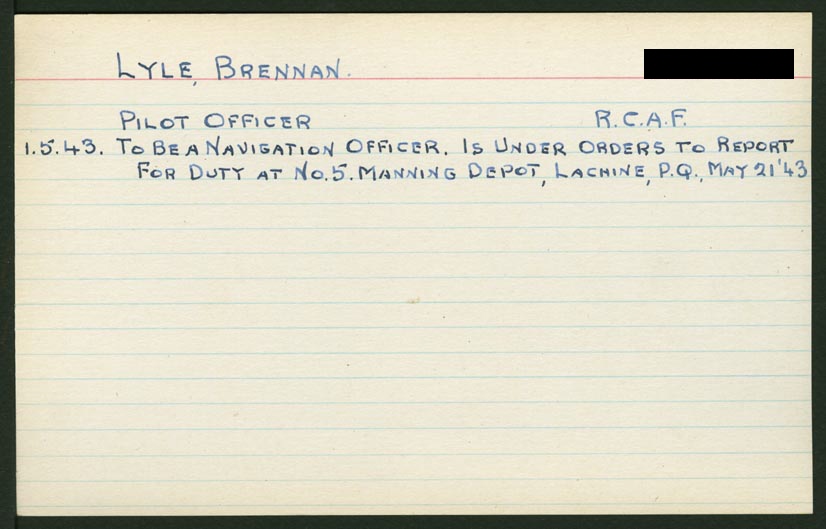 LYLE, BRENNAN.
PILOT OFFICER R.C.A.F.
1.5.43. TO BE A NAVIGATION OFFICER. IS UNDER ORDERS TO REPORT
FOR DUTY AT NO.5. MANNING DEPOT, LACHINE, P.Q., MAY 21'43